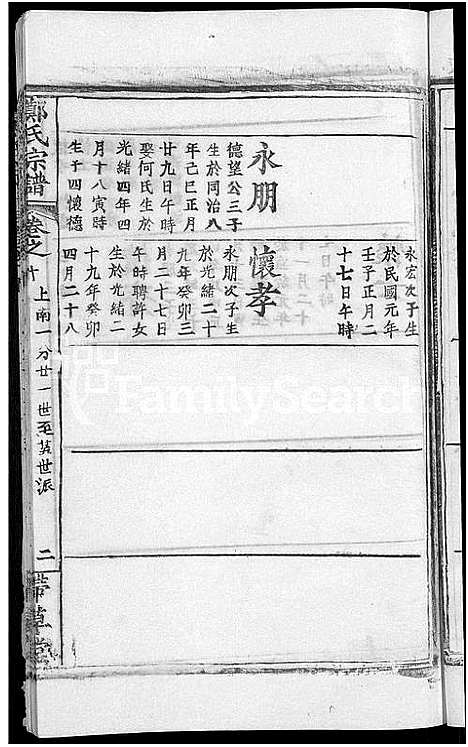 永宏次子生
於民國元年
壬子正月二
十七日午時
永朋
德望公三子
生於同治八
年己巳正月
廿九日午時
娶何氏生於
光緒四年四
月十八寅時
生子四懷德
懷孝
永朋次子生
於光緒二十
九年癸卯三
月二十七日
午時聘許女
生於光緒二
十九年癸卯
四月二十八
鄭氏宗譜
卷之十
上南一分廿一世至
世派
二
帶草堂
FamilySearch